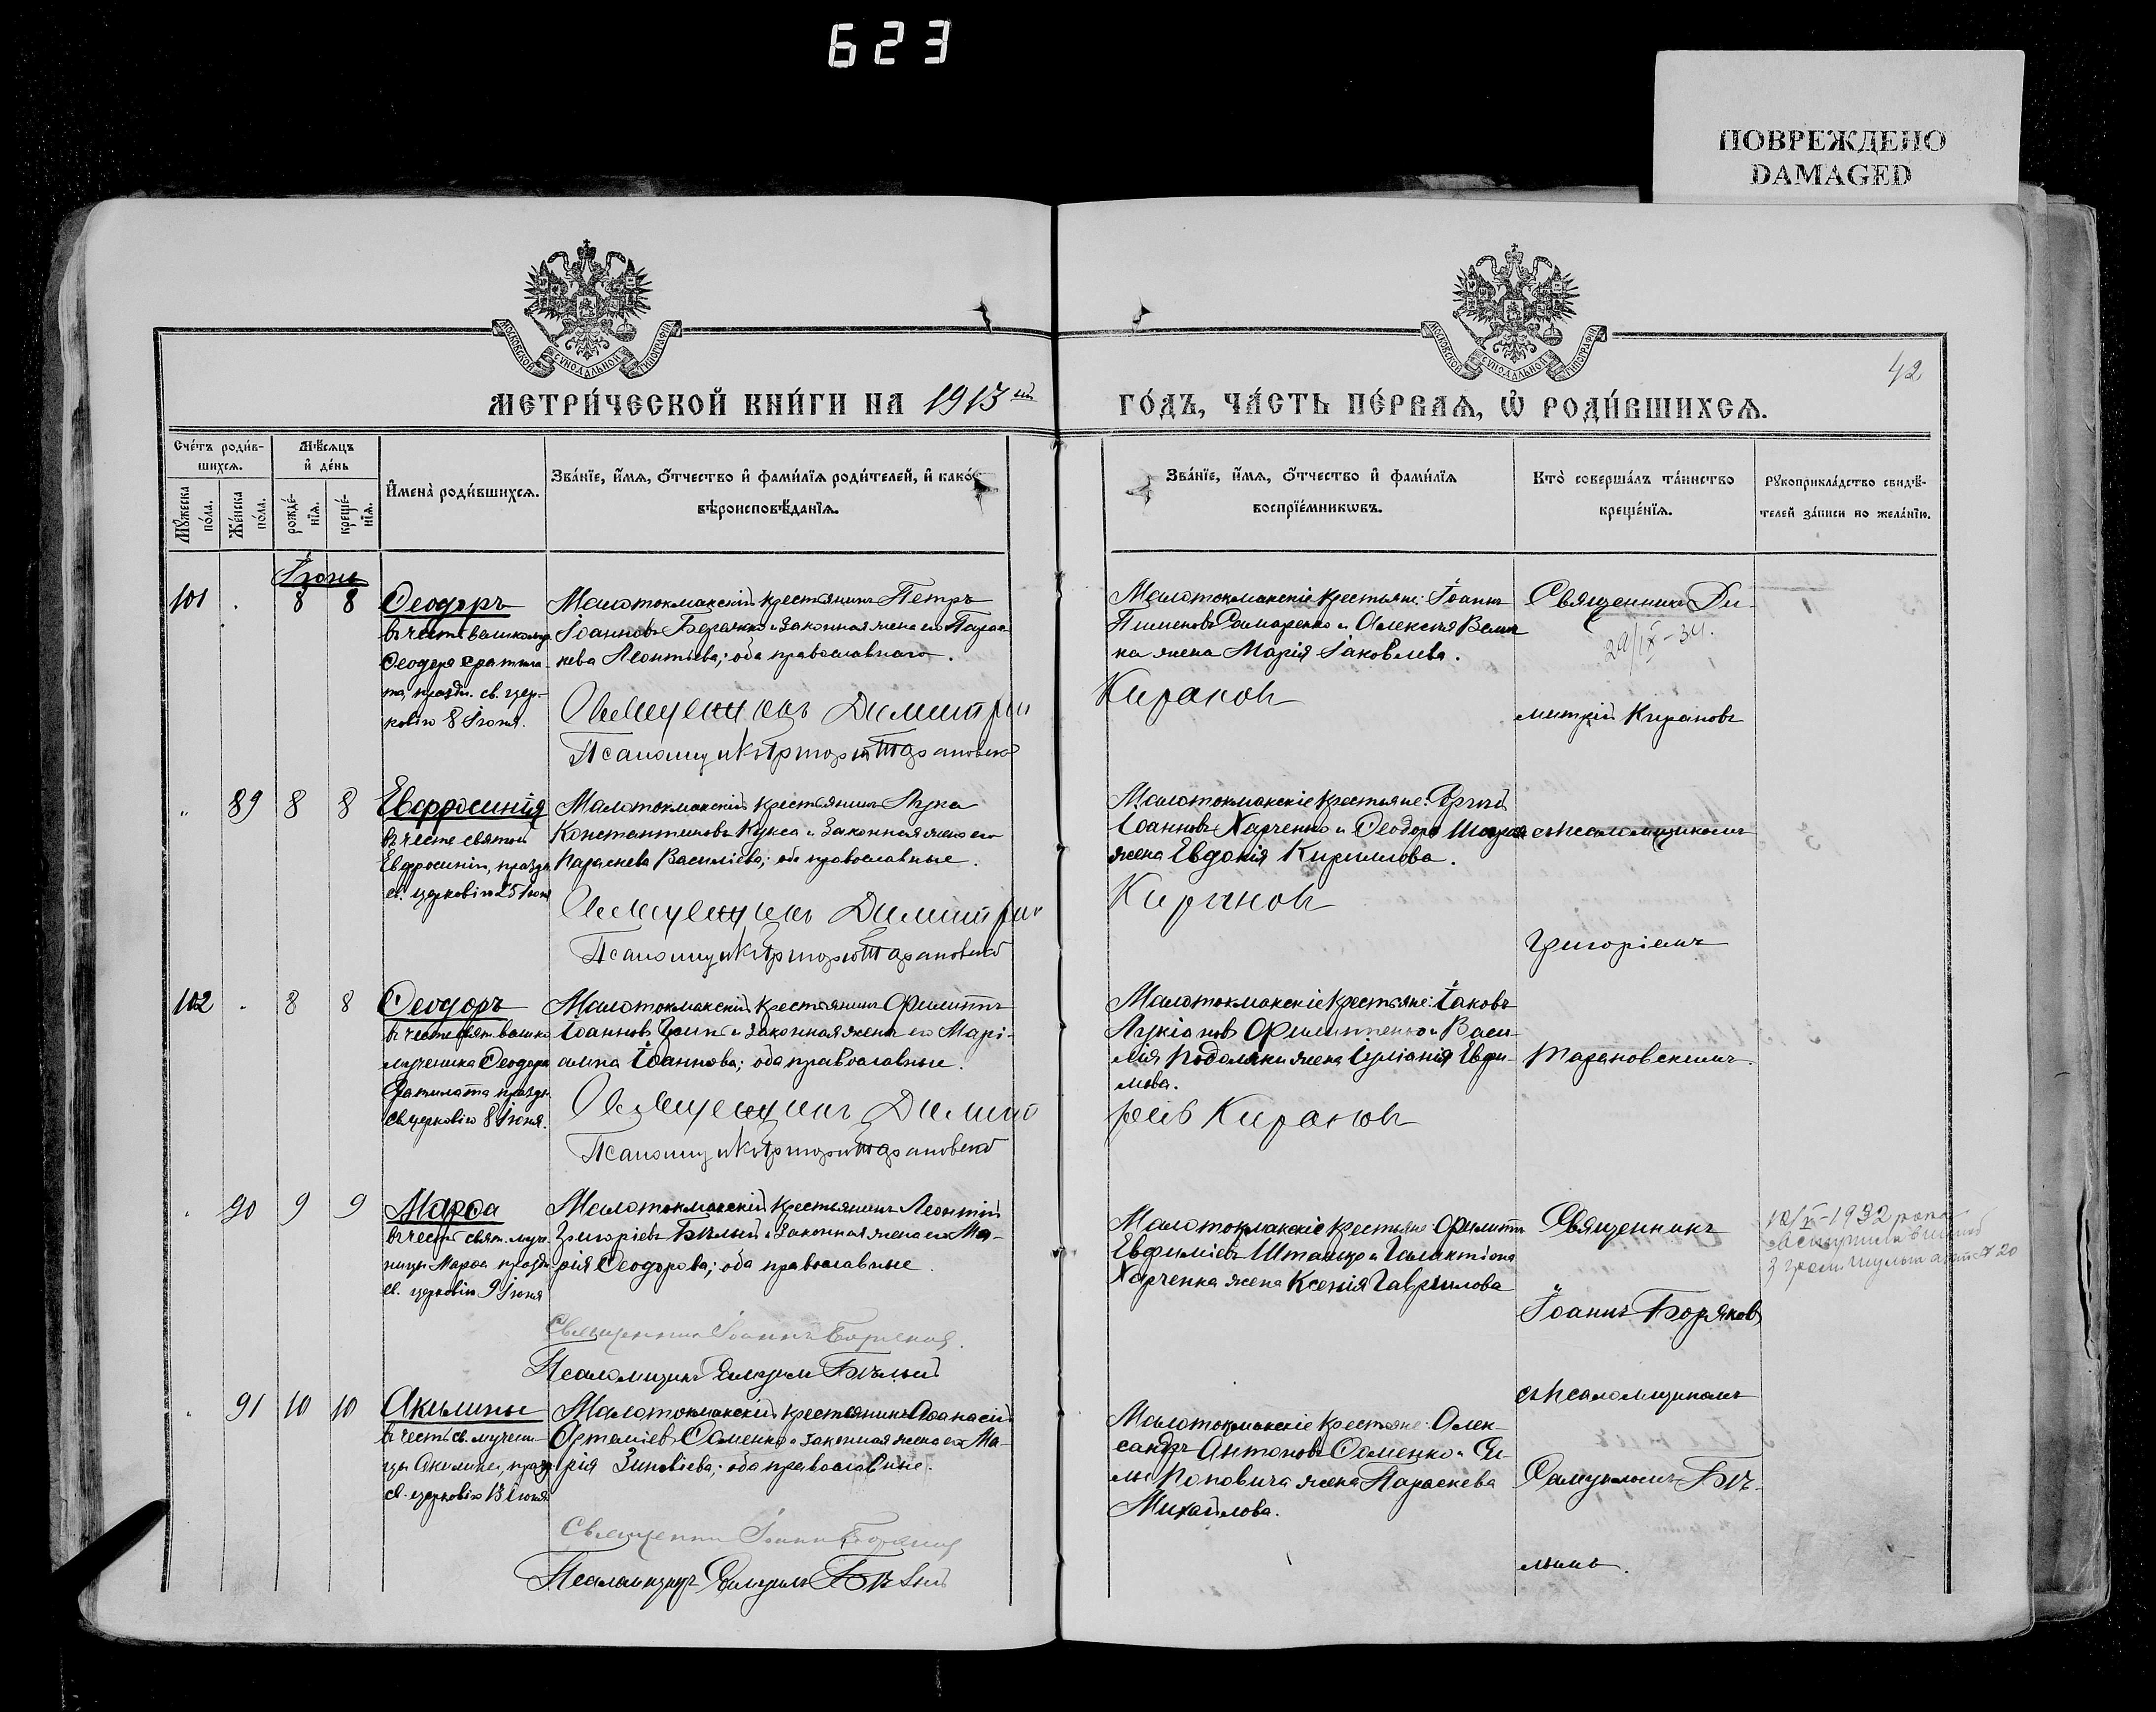 623
ПОВРЕЖДЕНО
DAMAGED
МОСКОВСКОЙ СѴНОДАЛЬНОЙ ТИПОГРАФІИ
МОСКОВСКОЙ СѴНОДАЛЬНОЙ ТИПОГРАФІИ
42
МЕТРИ́ЧЕСКОЙ КНИ́ГИ НА 1913 ій
ГО́ДЪ, ЧА́СТЬ ПЕ́РВАѦ, Ѡ҆ РОДИ́ВШИХСѦ.
Сче́тъ роди́в-
шихсѧ.
Мꙋ́жеска по́ла.
Же́нска по́ла.
Мѣ́сѧцъ
и҆ де́нь
рожде́-нїѧ.
креще́-нїѧ.
И҆мена̀ роди́вшихсѧ.
Зва́нїе, и҆́мѧ, ѻ҆́тчество и҆ фами́лїѧ роди́телей, и҆ како́г
вѣроисповѣ́данїѧ.
Зва́нїе, и҆́мѧ, ѻ҆́тчество и҆ фами́лїѧ
воспрїе́мникѡвъ.
Кто̀ соверша́лъ та́инство
креще́нїѧ.
Рꙋкоприкла́дство свидѣ́-
телей за́писи по жела́нїю.
Іюнь
101 8 8 Ѳеодоръ
въ честь великому
Ѳеодора Стратила
та, праздн. св. цер-
ковію 8 Іюня.
Малотокмакскій крестьянинъ Петръ
Іоанновъ Бережко и законная жена его Парас-
кева Леонтіева; оба православнаго.
Священникъ Димитрій
Псаломщикъ Григорій Тарановскій
Малотокмакскіе крестьяне: Іоаннъ
Пименовъ Самаренко и Алексѣя
на жена Марія Іаковлева.
Кирановъ
Священникъ Ди-
29/IX-34.
митрій Кирановъ
89 8 8 Евфросинія
въ честь святой
Евфросиніи, праздн
св. церковію 25 Іюня
Малотокмакскій крестьянинъ Лука
Константиновъ Кукса и законная жена его
Параскева Василіева; оба православные.
Священникъ Димитрій
Псаломщикъ Григорій Тарановскій
Малотокмакскіе крестьяне: Сергій
Іоанновъ Харченко и Ѳеодора
жена Евдокія Кириллова.
Кирановъ
съ псаломщикомъ
Григоріемъ
102 8 8 Ѳеодоръ
въ честь свят. велико
мученика Ѳеодора
Стратилата праздн.
св. церковію 8 Іюня.
Малотокмакскій крестьянинъ Филиппъ
Іоанновъ и законная жена его Марі-
амна Іоаннова; оба православные.
Священникъ Димит
Псаломщикъ Григорій Тарановскій
Малотокмакскіе крестьяне: Іаковъ
Лукіановъ Филиппенко и Васи-
лія Подоляки жена Іуліанія Евфи-
мова.
рій Кирановъ
Тарановскимъ.
90 9 9 Марѳа
въ честь свят. муче
ницы Марѳы праздн
св. церковію 9 Іюня
Малотокмакскій крестьянинъ Леонтій
Григоріевъ Бѣлый и законная жена его Ма-
рія Ѳеодорова; оба православные.
Священникъ Іоаннъ Боряковъ.
Псаломщикъ Самуилъ Бѣлый
Малотокмакскіе крестьяне Филиппъ
Евфиміевъ и Галактіона
Харченка жена Ксенія Гавріилова
Священникъ
Іоаннъ Боряковъ
съ псаломщикомъ
-1932 року
20
91 10 10 Акилины
въ честь св. мучени-
цы Акилины, празд
св. церковію 13 Іюня
Малотокмакскій крестьянинъ Аѳанасій
Артеміевъ Ѳоменко и законная жена его Ма-
рія Зиновіева; оба православные.
Священникъ Іоаннъ Боряковъ
Псаломщикъ Самуилъ Бѣлый
Малотокмакскіе крестьяне: Алек-
сандръ Антоновъ Ѳоменко и
Поповича жена Параскева
Михайлова.
Самуиломъ Бѣ-
лымъ.